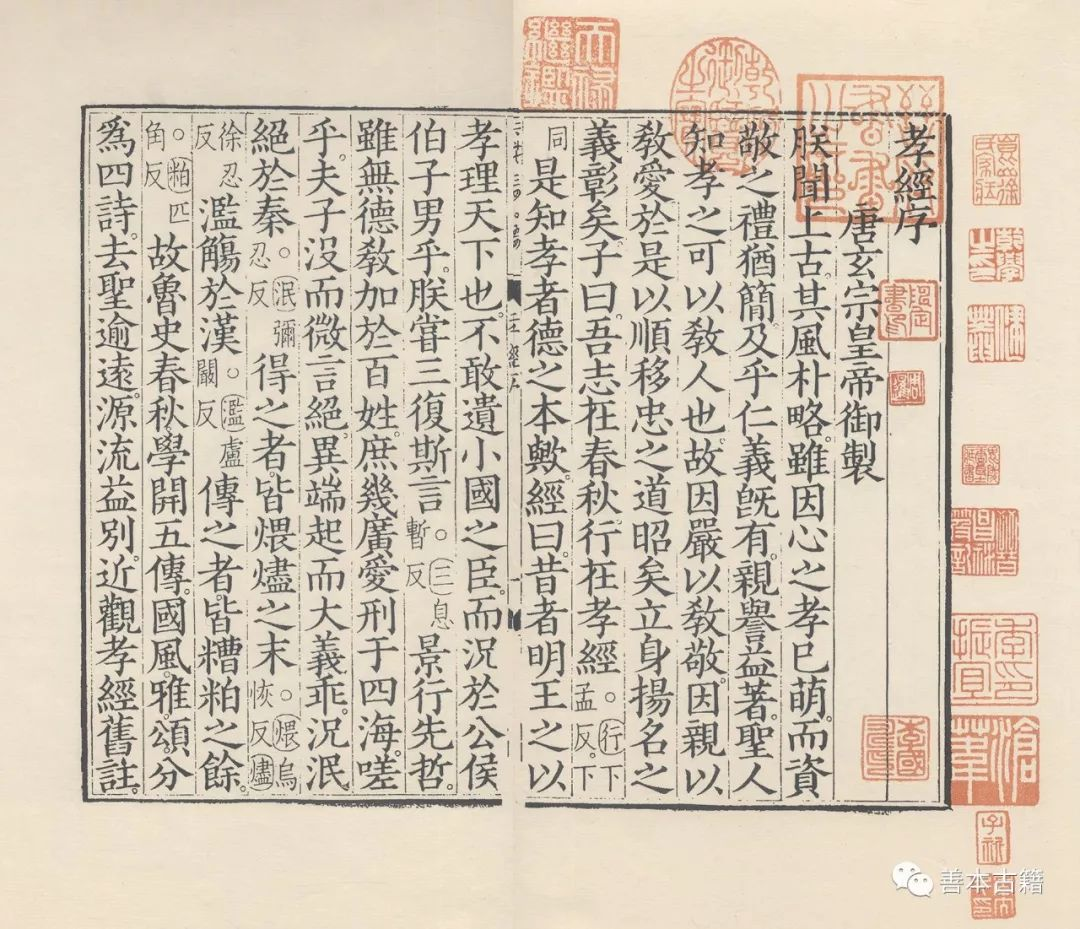 孝經序
唐玄宗皇帝御製
朕聞上古。其風朴略。雖因心之孝已萌。而資
敬之禮猶簡。及乎仁義旣有。親譽益著。聖人
知孝之可以敎人也。故因嚴以敎敬。因親以
敎愛。於是以順移忠之道昭矣。立身揚名之
義彰矣。子曰。吾志在春秋。行在孝經。行下孟反。下
同是知孝者德之本歟。經曰。昔者明王之以
孝理天下也。不敢遺小國之臣。而況於公侯
伯子男乎。朕嘗三復斯言。三息暫反景行先哲。
雖無德敎加於百姓。庶幾廣愛刑于四海。嗟
乎。夫子沒而微言絕。異端起而大義乖。況泯
絕於秦。泯彌忍反得之者。皆煨燼之末。煨烏恢反燼
徐忍反濫觴於漢。濫盧㘚反傳之者。皆糟粕之餘。
粕匹角反故魯史春秋。學開五傳。國風。雅。頌。分
爲四詩。去聖逾遠。源流益別。近觀孝經舊註。
善本古籍